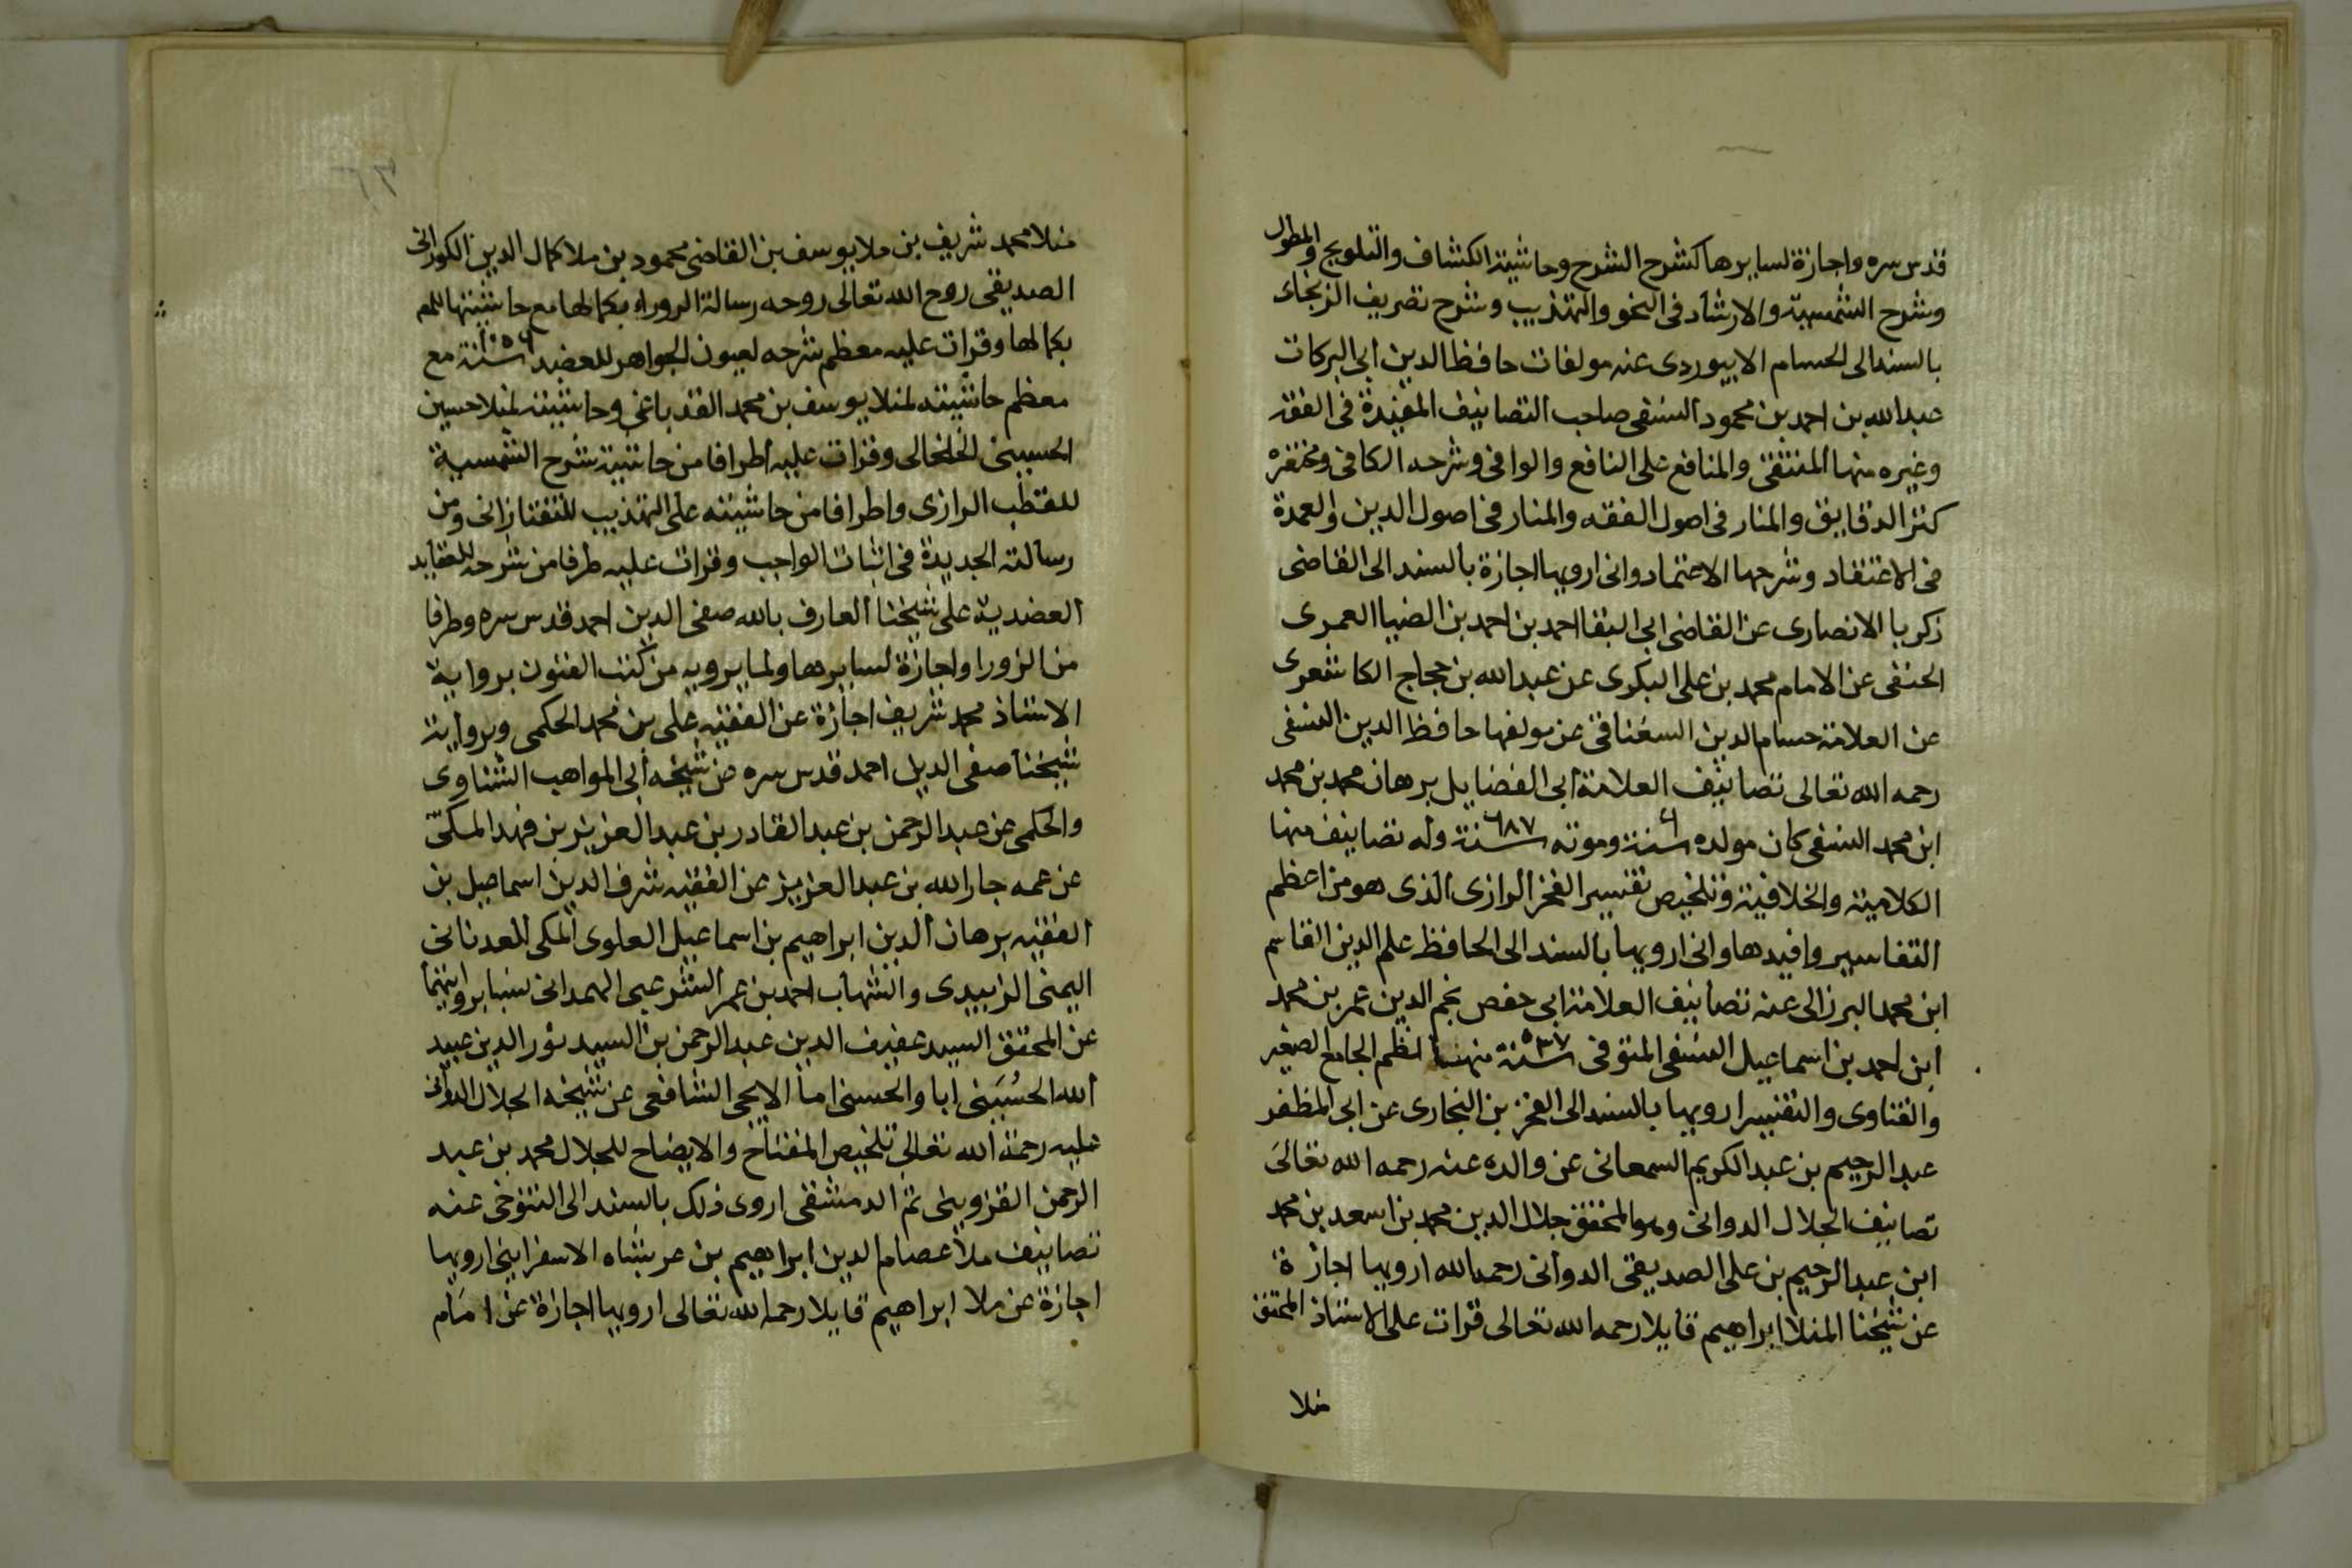 قدس سره واجازة لسايرها كشرح الشرح وحاشية الكشاف والتلويح والمطول
وشرح الشمسية والارشاد فى النحو والتهذيب وشرح تصريف الزنجاى
بالسند الى الحسام الابيوردى عنه مولفات حافظ الدين ابى البركات
عبد الله بن احمد بن محمود النسفى صاحب التصانيف المفيدة فى الفقه
وغيره منها المستصفى والمنافع على النافع والوافى وشرحه الكافى ومختصره
كنز الدقايق والمنار فى اصول الفقه والمنار فى اصول الدين والعمدة
فى الاعتقاد وشرحها الاعتماد وانى ارويها اجازة بالسند الى القاضى
زكريا الانصارى عن القاضى ابى البقا احمد بن احمد بن الضيا العمرى
الحنفى عن الامام محمد بن على البكرى عن عبد الله بن حجاج الكاشعرى
عن العلامة حسام الدين السغناقى عن مولفها حافظ الدين النسفى
رحمه الله تعالى تصانيف العلامة ابى الفضايل برهان محمد بن محمد
ابن محمد النسفى كان مولده سنة وموته سنة ٦٨٧ وله تصانيف منها
الكلامية والخلافية وتلخيص تفسير الفخر الرازى الذى هو من اعظم
التفاسير وافيدها وانى ارويها بالسند الى الحافظ علم الدين القاسم
ابن محمد البرزالى عنه تصانيف العلامة ابى حفص نجم الدين عمر بن محمد
ابن احمد بن اسماعيل النسفى المتوفى سنة ٥٣٧ منها نظم الجامع الصغير
والفتاوى والتفسير ارويها بالسند الى الفخر بن البخارى عن ابى المظفر
عبد الرحيم بن عبد الكريم السمعانى عن والده عنه رحمه الله تعالى
تصانيف الجلال الدوانى وهو المحقق جلال الدين محمد بن اسعد بن محمد
ابن عبد الرحيم بن على الصديقى الدوانى رحمه الله ارويها اجازة
عن شيخنا المنلا ابراهيم قايلا رحمه الله تعالى قرات على الاستاذ المحقق
منلا
منلا محمد شريف بن ملا يوسف بن القاضى محمود بن ملا كمال الدين الكورانى
الصديقى روح الله تعالى روحه رسالة الزوراء بكمالها مع حاشيتها للم
بكمالها وقرات عليه معظم شرحه لعيون الجواهر للعضد سنة ١٠٥٦ مع
معظم حاشيته لمنلا يوسف بن محمد القدباغى وحاشيته لمنلا حسين
الحسينى الخلخالى وقرات عليه اطرافا من حاشية شرح الشمسية
للقطب الرازى واطرافا من حاشيته على التهذيب للتفتازانى ومن
رسالته الجديدة فى اثبات الواجب وقرات عليه طرفا من شرحه للعقايد
العضدية على شيخنا العارف بالله صفى الدين احمد قدس سره وطرفا
من الزورا واجازة لسايرها ولما يرويه من كتب الفنون برواية
الاستاذ محمد شريف اجازة عن الفقيه على بن محمد الحكمى وبرواية
شيخنا صفى الدين احمد قدس سره عن شيخه ابى المواهب الشناوى
والحكمى عن عبد الرحمن بن عبد القادر بن عبد العزيز بن فهد المكى
عن عمه جار الله بن عبد العزيز عن الفقيه شرف الدين اسماعيل بن
الفقيه برهان الدين ابراهيم بن اسماعيل العلوى المكى العدنانى
اليمنى الزبيدى والشهاب احمد بن عمر الشرعبى الهمدانى بروايتهما
عن المحقق السيد عفيف الدين عبد الرحمن بن السيد نور الدين عبيد
الله الحُسَينى ابا والحسنى اما الايجى الشافعى عن شيخه الجلال الدوانى
عليه رحمة الله تعالى تلخيص المفتاح والايضاح للجلال محمد بن عبد
الرحمن القزوينى ثم الدمشقى اروى ذلك بالسند الى التنوخى عنه
تصانيف ملا عصام الدين ابراهيم بن عربشاه الاسفراينى ارويها
اجازة عن ملا ابراهيم قايلا رحمه الله تعالى ارويها اجازة عن امام